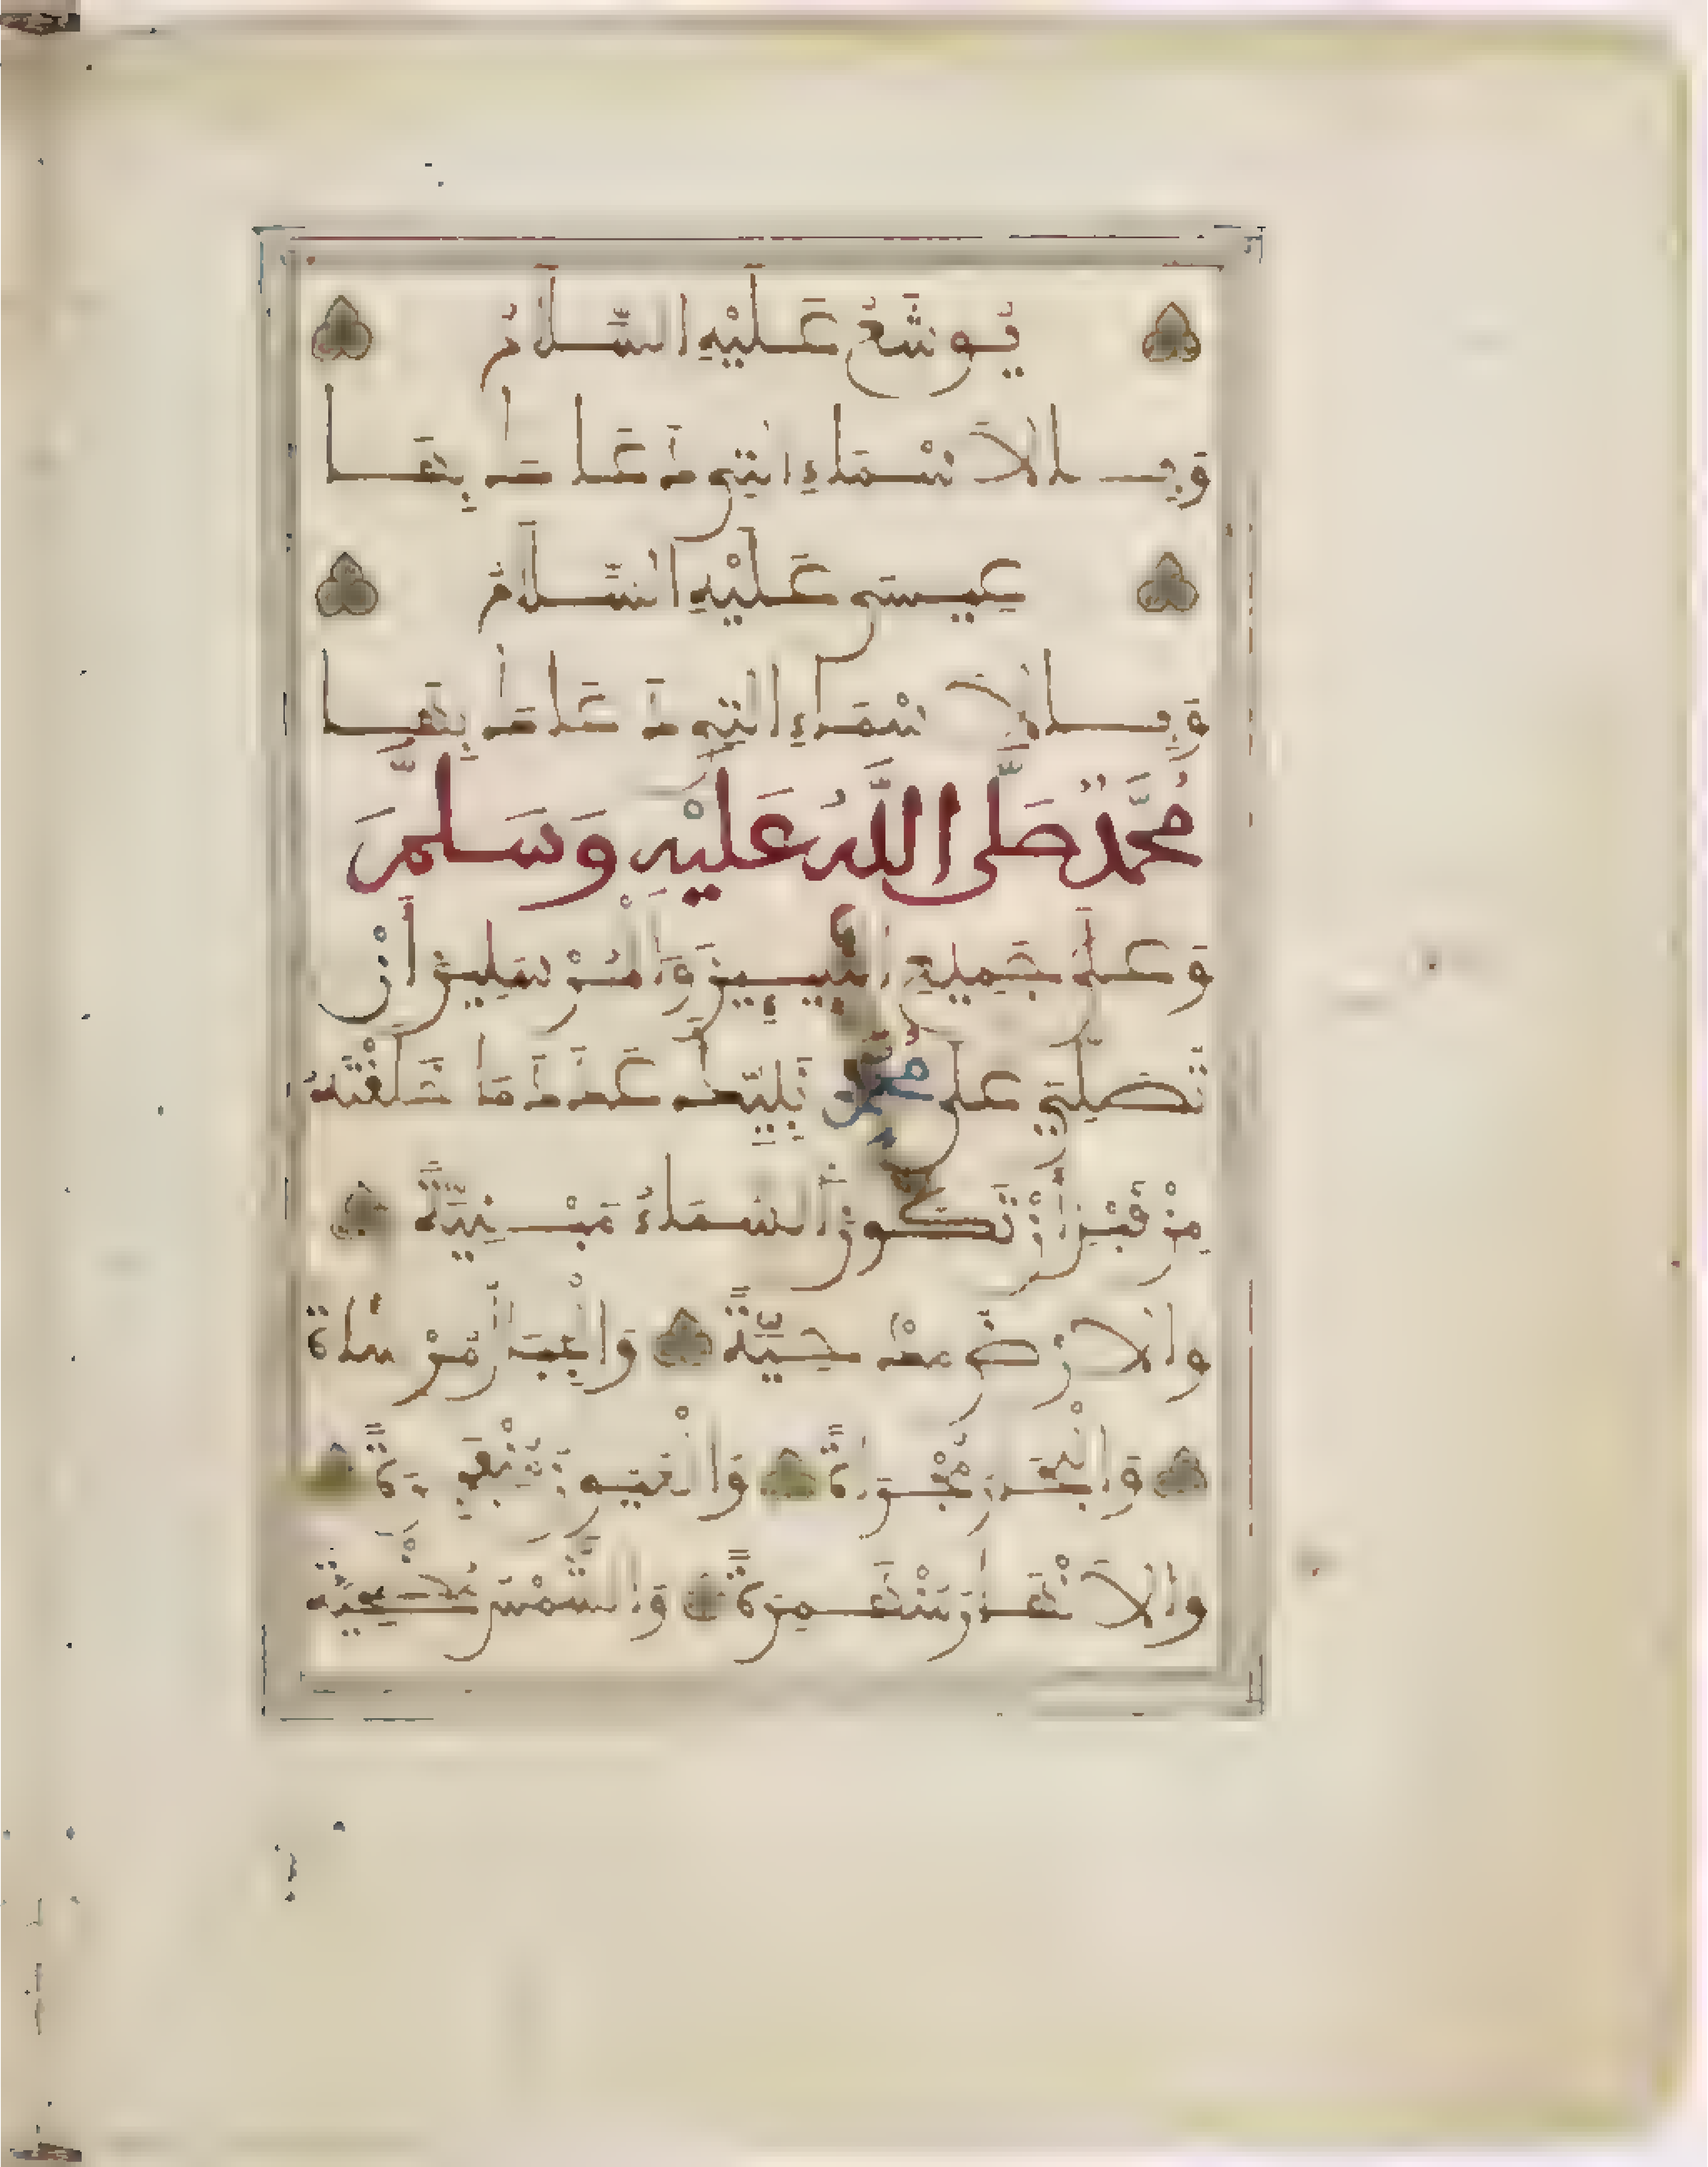 يُوشَعُ عَلَيْهِ السَّلَامُ
وَبِالْأَسْمَاءِ الَّتِي دَعَاكَ بِهَا
عِيسَى عَلَيْهِ السَّلَامُ
وَبِالْأَسْمَاءِ الَّتِي دَعَاكَ بِهَا
مُحَمَّدٌ صَلَّى اللَّهُ عَلَيْهِ وَسَلَّمَ
وَعَلَى جَمِيعِ النَّبِيئِينَ وَالْمُرْسَلِينَ أَنْ
تُصَلِّيَ عَلَى مُحَمَّدٍ نَبِيِّكَ عَدَدَ مَا خَلَقْتَهُ
مِنْ قَبْلِ أَنْ تَكُونَ السَّمَاءُ مَبْنِيَّةً
وَالْأَرْضُ مَدْحِيَّةً وَالْجِبَالُ مُرْسَاةً
وَالْعُيُونُ مُنْفَجِرَةً
وَالْأَنْهَارُ مُنْهَمِرَةً وَالشَّمْسُ مُضْحِيَةً